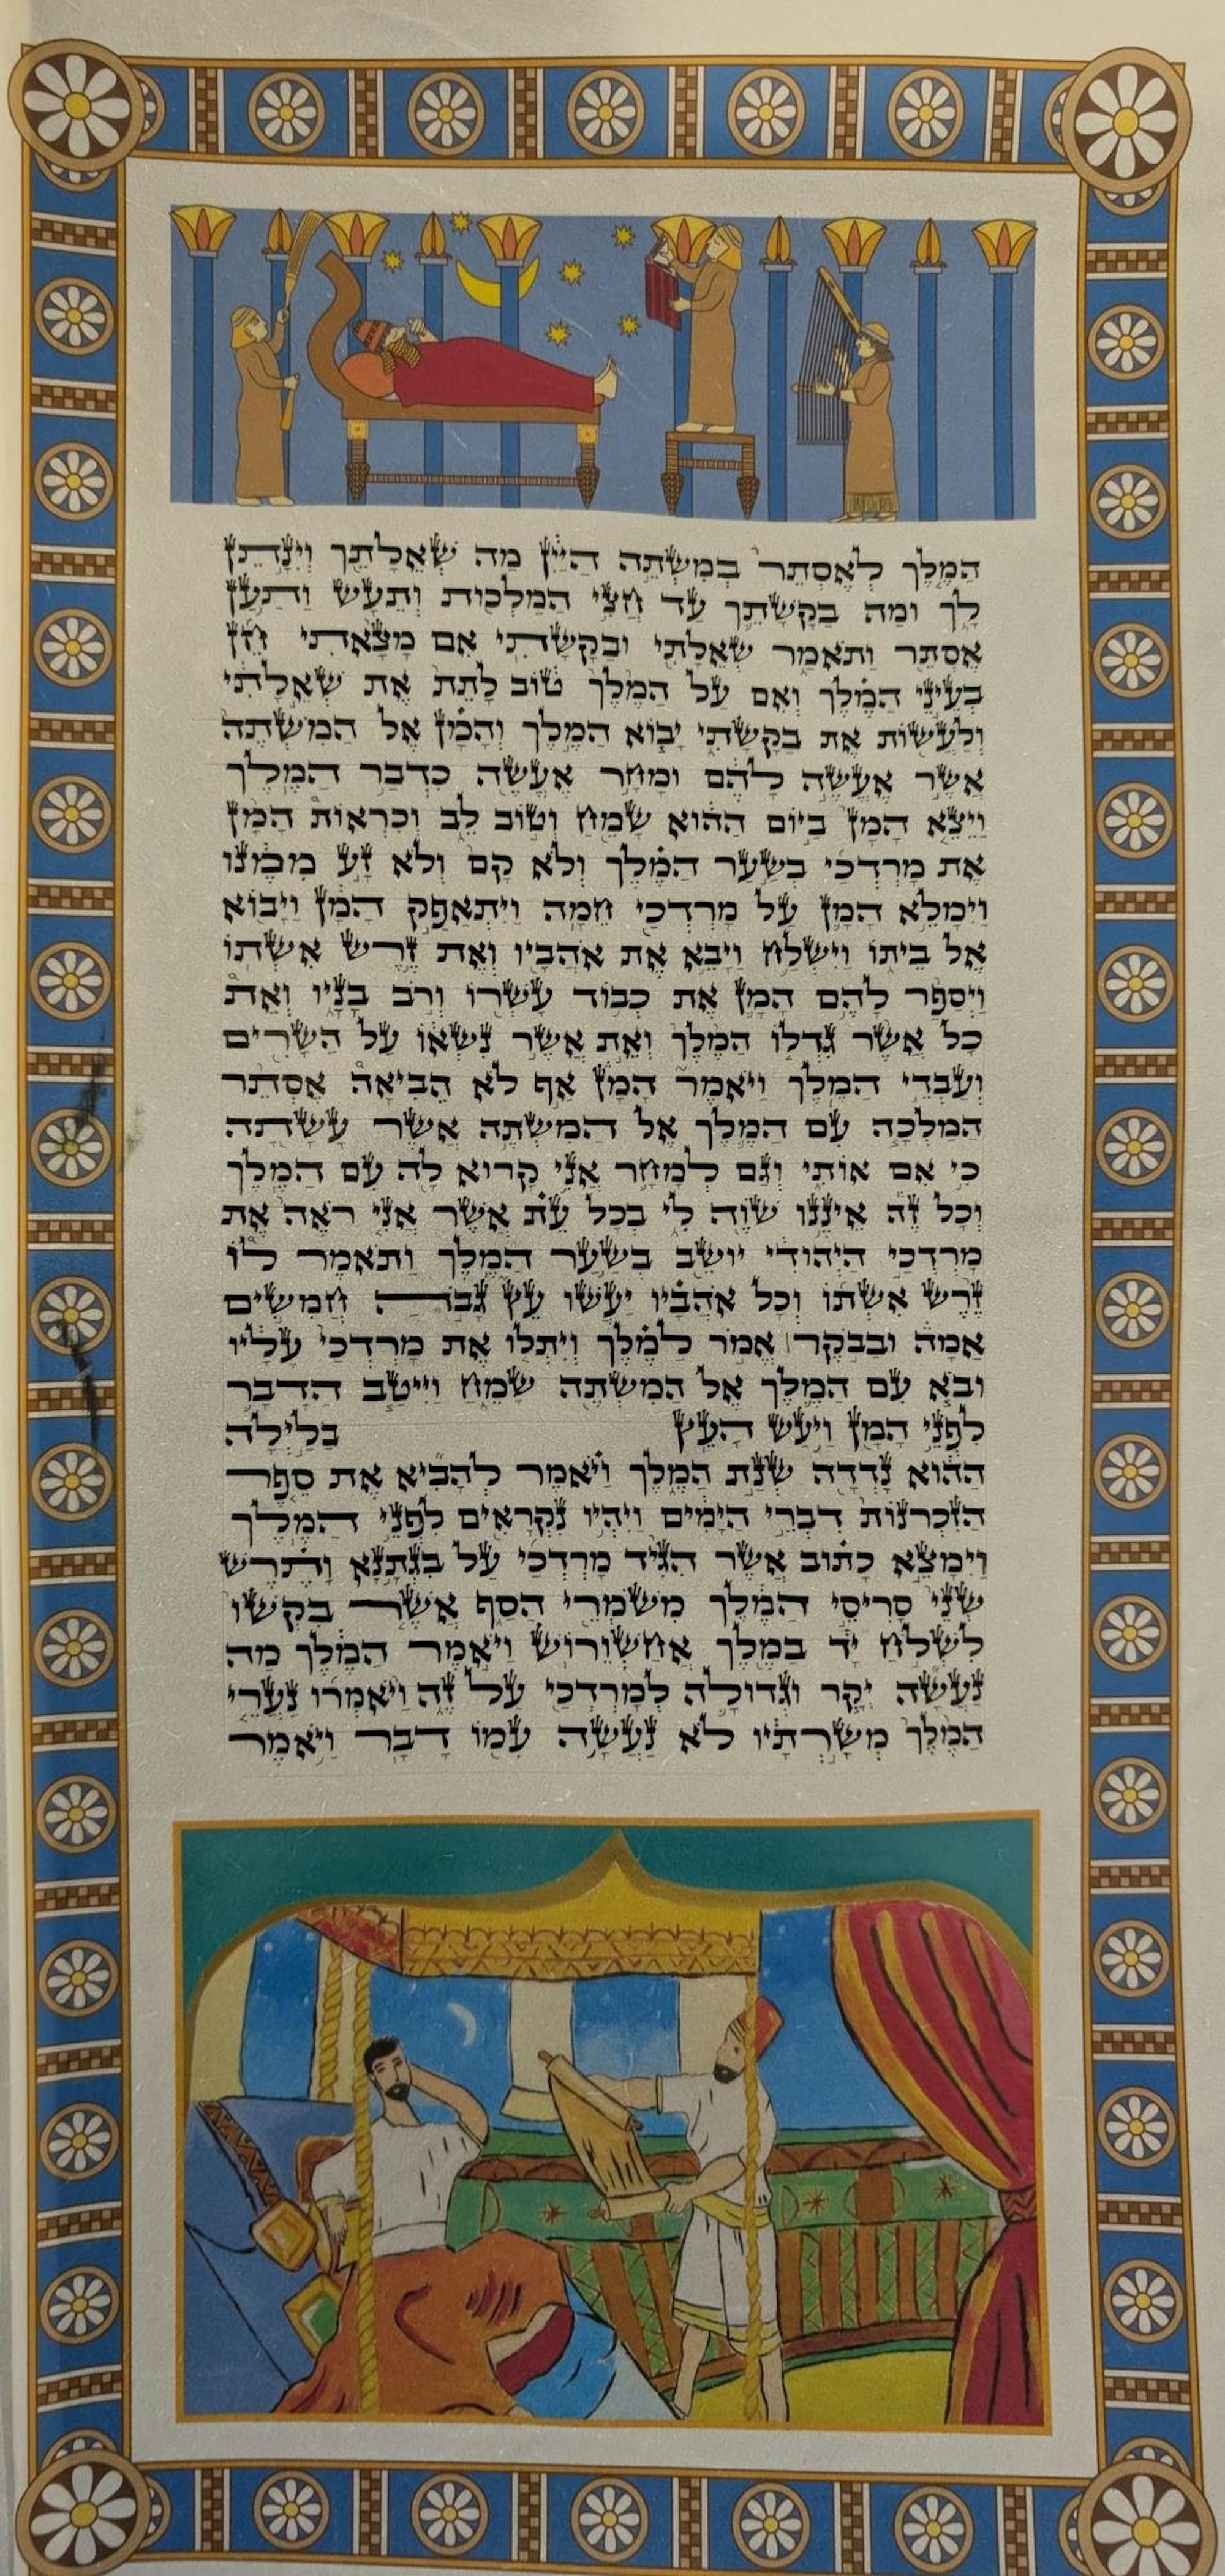 הַמֶּלֶךְ לְאֶסְתֵּר בְּמִשְׁתֵּה הַיַּיִן מַה שְּׁאֵלָתֵךְ וְיִנָּתֵן
לָךְ וּמַה בַּקָּשָׁתֵךְ עַד חֲצִי הַמַּלְכוּת וְתֵעָשׂ וַתַּעַן
אֶסְתֵּר וַתֹּאמַר שְׁאֵלָתִי וּבַקָּשָׁתִי אִם מָצָאתִי חֵן
בְּעֵינֵי הַמֶּלֶךְ וְאִם עַל הַמֶּלֶךְ טוֹב לָתֵת אֶת שְׁאֵלָתִי
וְלַעֲשׂוֹת אֶת בַּקָּשָׁתִי יָבוֹא הַמֶּלֶךְ וְהָמָן אֶל הַמִּשְׁתֶּה
אֲשֶׁר אֶעֱשֶׂה לָהֶם וּמָחָר אֶעֱשֶׂה כִּדְבַר הַמֶּלֶךְ
וַיֵּצֵא הָמָן בַּיּוֹם הַהוּא שָׂמֵחַ וְטוֹב לֵב וְכִרְאוֹת הָמָן
אֶת מָרְדֳּכַי בְּשַׁעַר הַמֶּלֶךְ וְלֹא קָם וְלֹא זָע מִמֶּנּוּ
וַיִּמָּלֵא הָמָן עַל מָרְדֳּכַי חֵמָה וַיִּתְאַפַּק הָמָן וַיָּבוֹא
אֶל בֵּיתוֹ וַיִּשְׁלַח וַיָּבֵא אֶת אֹהֲבָיו וְאֶת זֶרֶשׁ אִשְׁתּוֹ
וַיְסַפֵּר לָהֶם הָמָן אֶת כְּבוֹד עָשְׁרוֹ וְרֹב בָּנָיו וְאֵת
כָּל אֲשֶׁר גִּדְּלוֹ הַמֶּלֶךְ וְאֵת אֲשֶׁר נִשְּׂאוֹ עַל הַשָּׂרִים
וְעַבְדֵי הַמֶּלֶךְ וַיֹּאמֶר הָמָן אַף לֹא הֵבִיאָה אֶסְתֵּר
הַמַּלְכָּה עִם הַמֶּלֶךְ אֶל הַמִּשְׁתֶּה אֲשֶׁר עָשָׂתָה
כִּי אִם אוֹתִי וְגַם לְמָחָר אֲנִי קָרוּא לָהּ עִם הַמֶּלֶךְ
וְכָל זֶה אֵינֶנּוּ שֹׁוֶה לִי בְּכָל עֵת אֲשֶׁר אֲנִי רֹאֶה אֶת
מָרְדֳּכַי הַיְּהוּדִי יוֹשֵׁב בְּשַׁעַר הַמֶּלֶךְ וַתֹּאמֶר לוֹ
זֶרֶשׁ אִשְׁתּוֹ וְכָל אֹהֲבָיו יַעֲשׂוּ עֵץ גָּבֹהַּ חֲמִשִּׁים
אַמָּה וּבַבֹּקֶר אֱמֹר לַמֶּלֶךְ וְיִתְלוּ אֶת מָרְדֳּכַי עָלָיו
וּבֹא עִם הַמֶּלֶךְ אֶל הַמִּשְׁתֶּה שָׂמֵחַ וַיִּיטַב הַדָּבָר
לִפְנֵי הָמָן וַיַּעַשׂ הָעֵץ בַּלַּיְלָה
הַהוּא נָדְדָה שְׁנַת הַמֶּלֶךְ וַיֹּאמֶר לְהָבִיא אֶת סֵפֶר
הַזִּכְרֹנוֹת דִּבְרֵי הַיָּמִים וַיִּהְיוּ נִקְרָאִים לִפְנֵי הַמֶּלֶךְ
וַיִּמָּצֵא כָתוּב אֲשֶׁר הִגִּיד מָרְדֳּכַי עַל בִּגְתָנָא וָתֶרֶשׁ
שְׁנֵי סָרִיסֵי הַמֶּלֶךְ מִשֹּׁמְרֵי הַסַּף אֲשֶׁר בִּקְשׁוּ
לִשְׁלֹחַ יָד בַּמֶּלֶךְ אֲחַשְׁוֵרוֹשׁ וַיֹּאמֶר הַמֶּלֶךְ מַה
נַּעֲשָׂה יְקָר וּגְדוּלָּה לְמָרְדֳּכַי עַל זֶה וַיֹּאמְרוּ נַעֲרֵי
הַמֶּלֶךְ מְשָׁרְתָיו לֹא נַעֲשָׂה עִמּוֹ דָּבָר וַיֹּאמֶר